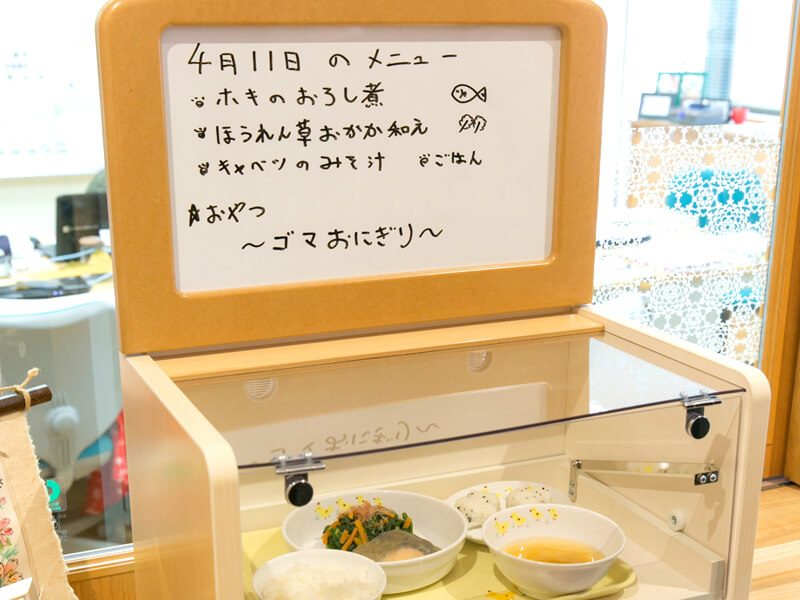 4月11日 の メニュー
ホキのおろし煮
ほうれん草おかか和え
キャベツのみそ汁 ごはん
おやつ
～ゴマおにぎり～